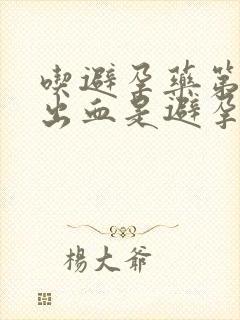 喫避孕藥第
出血是避孕
楊大爺